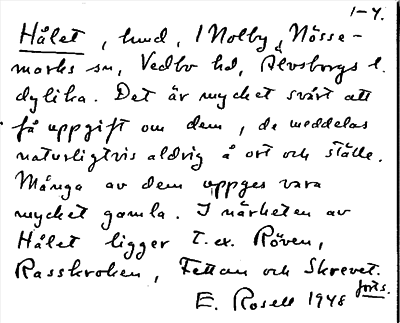 1-4.
Hålet, hmd, i Nolby, Nösse-
marks sn, Vedbo hd, Älvsborgs l.
dylika. Det är mycket svårt att
få uppgift om dem, de meddelas
naturligtvis aldrig å ort och ställe.
Många av dem uppges vara
mycket gamla. I närheten av
Hålet ligger t.ex. Röven,
Rasskroken, Fettan och Skrevet.
forts.
E. Rosell 1948